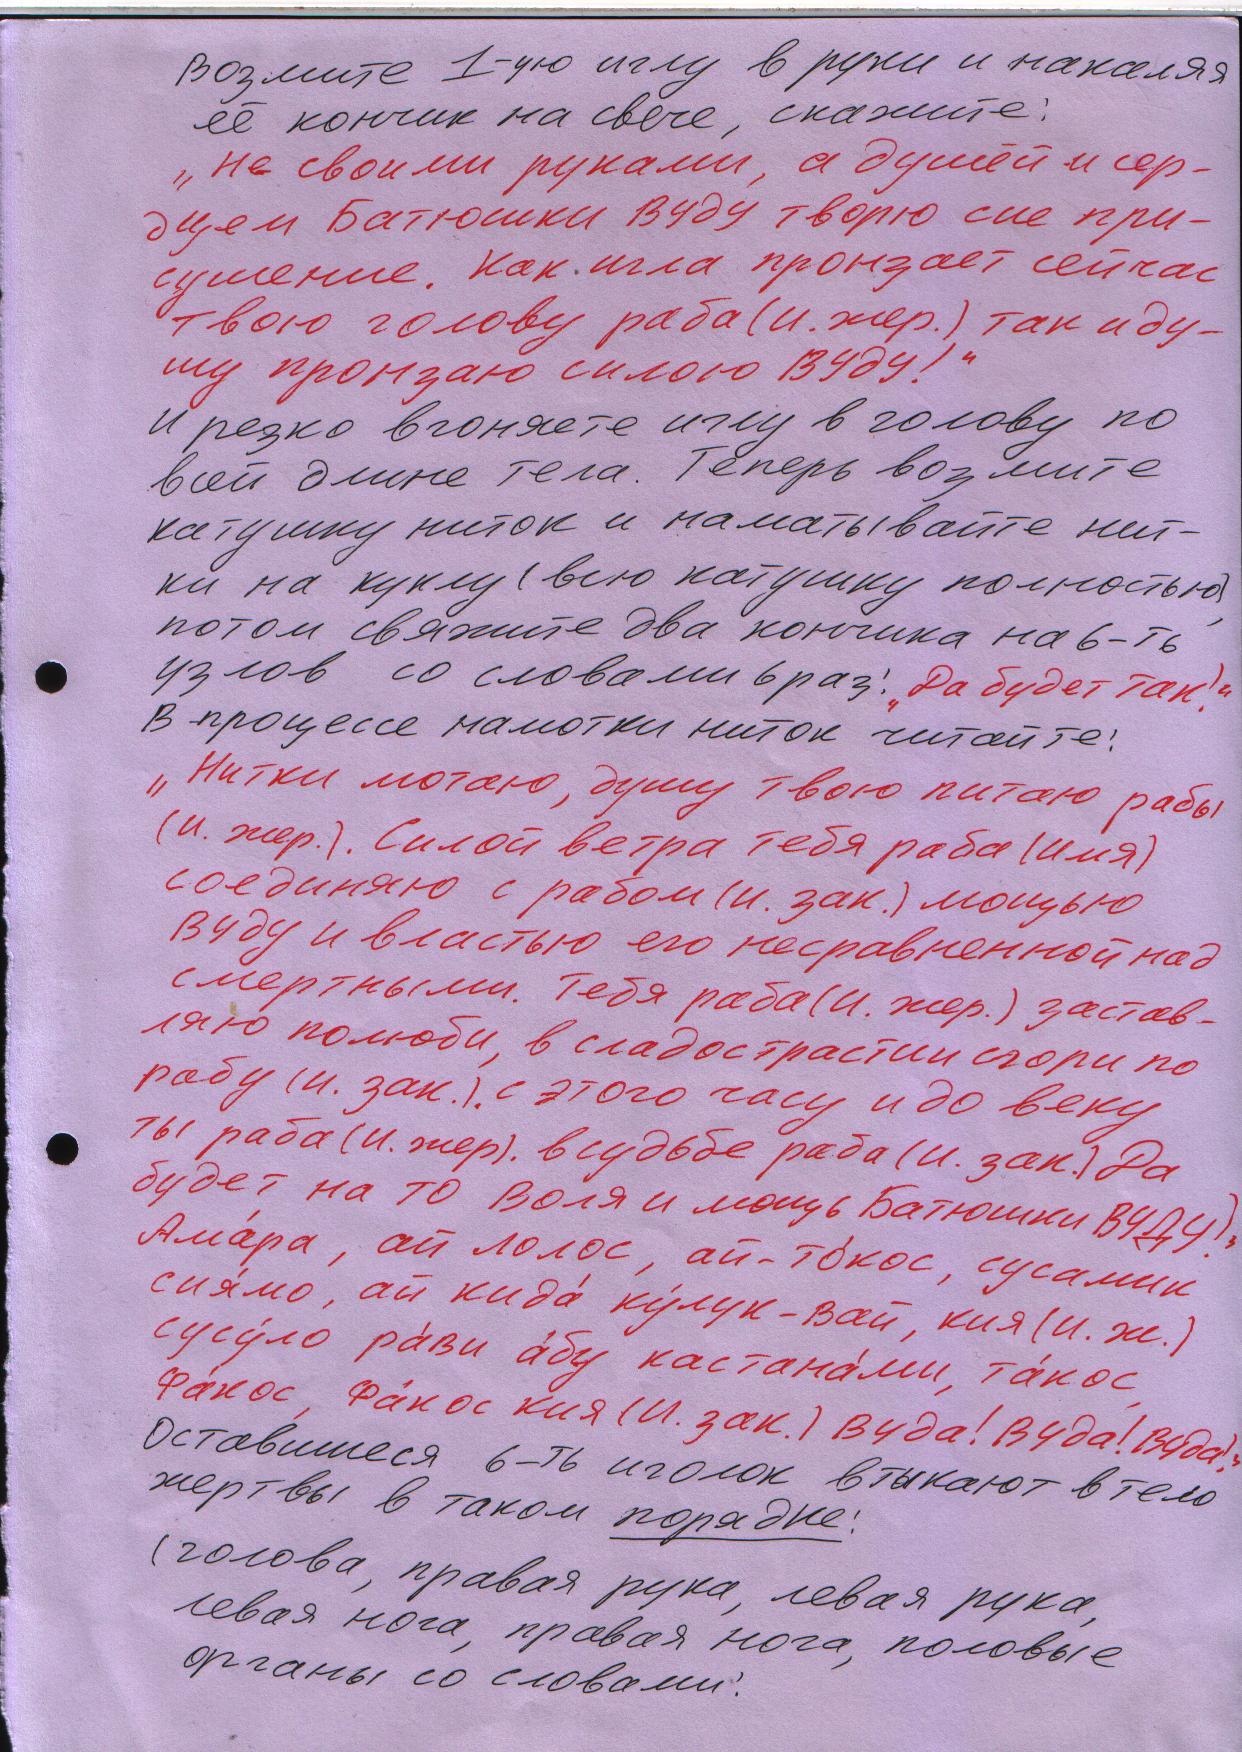 Возмите 1-ую иглу в руки и накаляя
её кончик на свече, скажите:
„Не своими руками, а душей и сер-
дцем Батюшки Вуду творю сие при-
сушение. Как игла пронзает сейчас
твою голову раба (и. жер.) так и ду-
шу пронзаю силою Вуду!“
И резко вгоняете иглу в голову по
всей длине тела. Теперь возмите
катушку ниток и наматывайте нит-
ки на куклу (всю катушку полностью),
потом свяжите два кончика на 6-ть
узлов со словами 6 раз: „Да будет так!“
В процессе намотки ниток читайте:
„Нитки мотаю, душу твою питаю рабы
(и. жер.). Силой ветра тебя раба (имя)
соединяю с рабом (и. зак.) мощью
Вуду и властью его несравненной над
смертными. Тебя раба (и. жер.) застав-
ляю полюби, в сладострастии сгори по
рабу (и. зак.). с этого часу и до веку
ты раба (и. жер). в судьбе раба (и. зак.) Да
будет на то Воля и мощь Батюшки ВУДУ!“
Ама́ра, ай лолос, ай-то́кос, сусамик
сия́мо, ай кида́ ку́лук-вай, кия (и. ж.)
сусу́ло ра́ви а́бу кастана́ми, та́кос,
Фа́кос, Фа́кос кия (и. зак.) Вуда! Вуда! Вуда!“
Оставшиеся 6-ть иголок втыкают в тело
жертвы в таком порядке:
(голова, правая рука, левая рука,
левая нога, правая нога, половые
органы со словами: